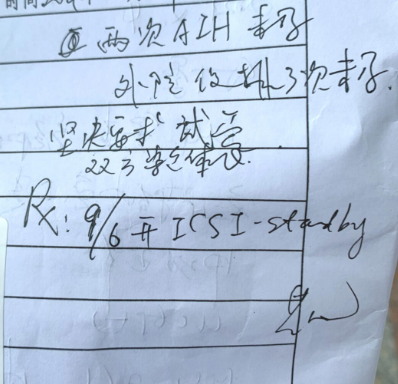 两次AIH未孕
外院促排3次未孕.
坚决要求试管.
双方染色体
Rx: 9/6 开 ICSI-standby